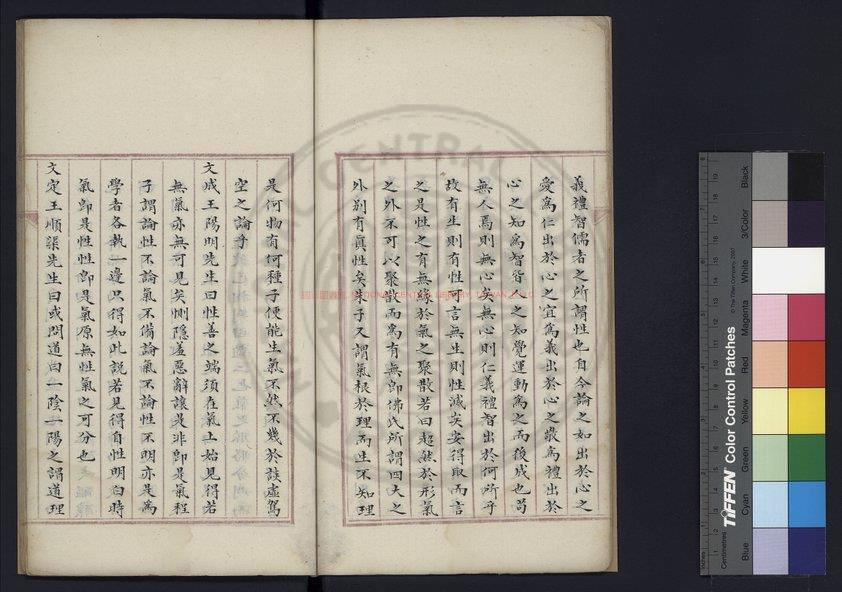 義禮智儒者之所謂性也自今論之如出於心之
愛為仁出於心之宜為義出於心之敬為禮出於
心之知為智皆人之知覺運動為之而後成也苟
無人焉則無心矣無心則仁義禮智出於何所乎
故有生則有性可言無生則性滅矣安得取而言
之是性之有無緣於氣之聚散若曰超然於形氣
之外不可以聚散而為有無即佛氏所謂四大之
外别有真性矣朱子又謂氣根於理而生不知理
是何物有何種子便能生氣不然不幾於談虛駕
空之論乎
文成王陽明先生曰性善之端須在氣上始見得若
無氣亦無可見矣惻隱羞惡辭讓是非即是氣程
子謂論性不論氣不備論氣不論性不明亦是為
學者各執一邊只得如此說若見得自性明白時
氣即是性性即是氣原無性氣之可分也
文定王順渠先生曰或問道曰一陰一陽之謂道理
NATIONAL CENTRAL LIBRARY, TAIWAN
TIFFEN Color Control Patches
© The Tiffen Company, 2007
Centimetres
Inches
Blue
Cyan
Green
Yellow
Red
Magenta
White
3/Color
Black